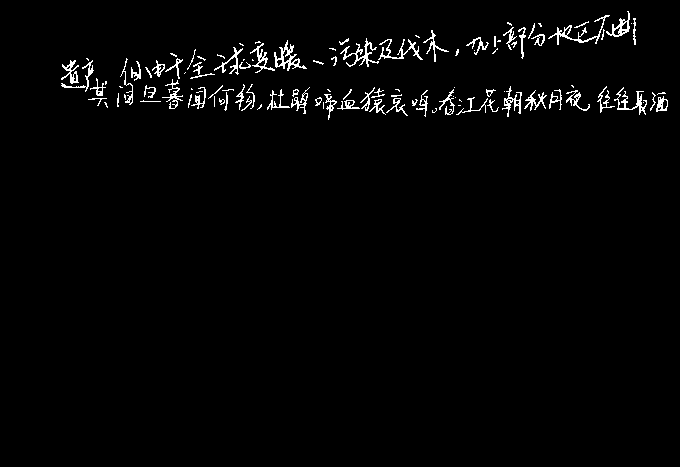 遗产，但由于全球变暖、污染及伐木，加上部分地区不断
其间旦暮闻何物，杜鹃啼血猿哀鸣。春江花朝秋月夜，往往取酒